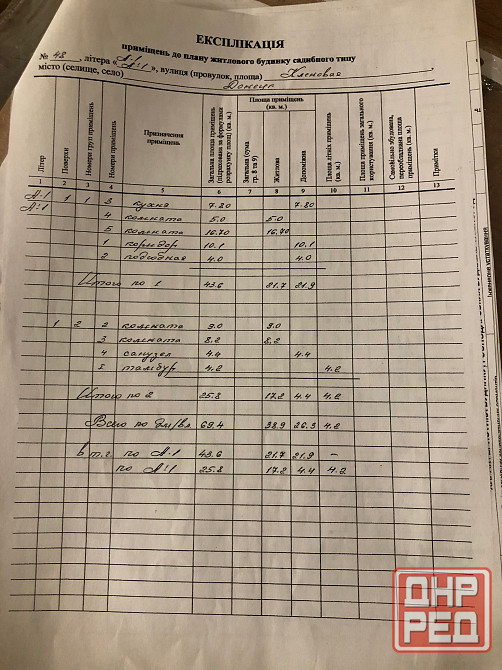 ЕКСПЛІКАЦІЯ
приміщень до плану житлового будинку садибного типу
№ 48, літера «А-1 А¹-1», вулиця (провулок, площа) Кленовая
місто (селище, село) Донецк
Літер
Поверхи
Номери груп приміщень
Номери приміщень
Призначення приміщення
Загальна площа приміщень
(підрахована за формулами
розрахунку площ) (кв. м.)
Площа приміщень
(кв. м.)
Загальна (сума
гр. 8 та 9)
Житлова
Допоміжна
Площа літніх приміщень
(кв. м.)
Площа приміщень загального
користування (кв. м.)
Самовільно збудована,
переобладнана площа
приміщень (кв. м.)
Примітки
1 2 3 4 5 6 7 8 9 10 11 12 13
А-1 1 1 3 кухня 7.80 7.80
А¹-1 4 комната 5.0 5.0
5 комната 16.70 16.70
1 коридор 10.1 10.1
2 подсобная 4.0 4.0
Итого по 1 43.6 21.7 21.9
1 2 2 комната 9.0 9.0
3 комната 8.2 8.2
4 санузел 4.4 4.4
1 тамбур 4.2 4.2
Итого по 2 25.8 17.2 4.4 4.2
Всего по 69.4 38.9 26.3 4.2
в т.ч. по А-1 43.6 21.7 21.9 –
по А¹-1 25.8 17.2 4.4 4.2
ДНР
РЕД